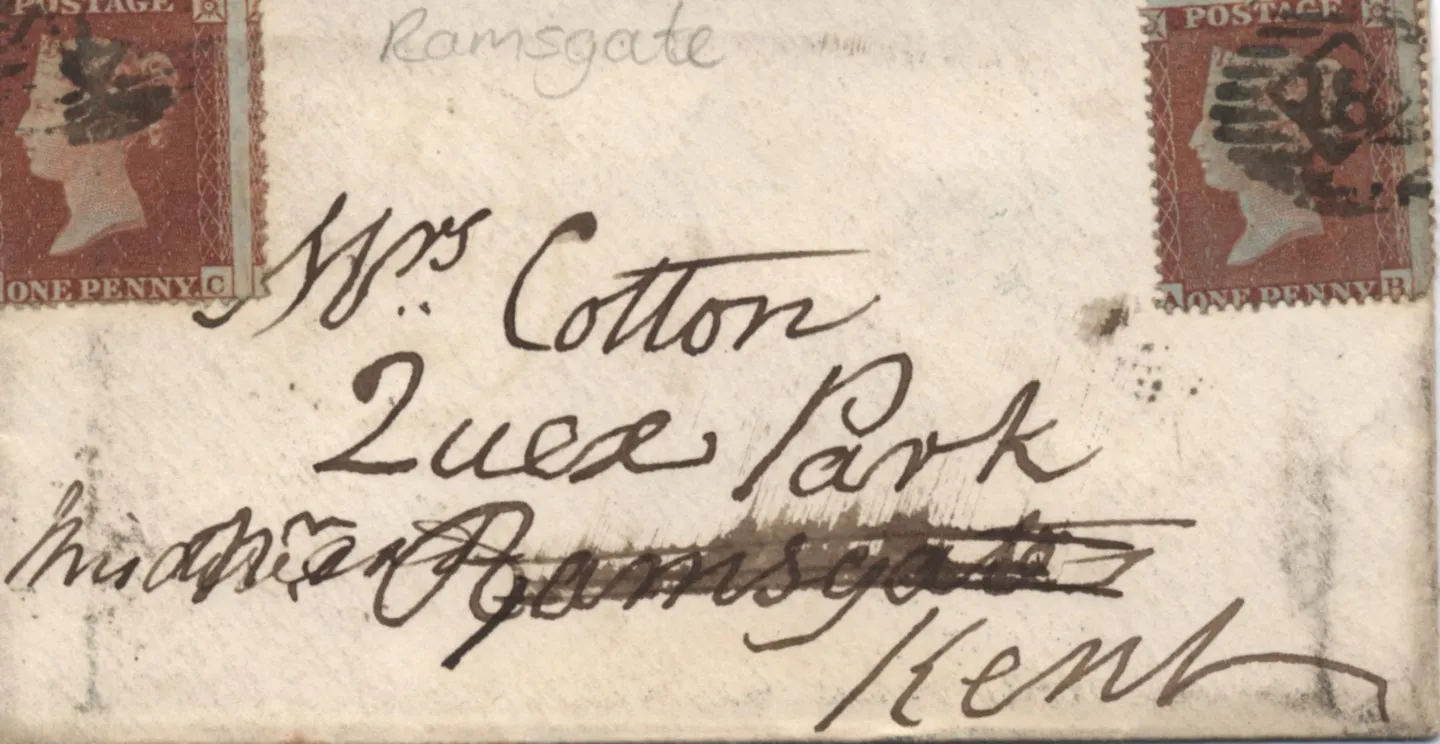 POSTAGE
Ramsgate
POSTAGE
ONE PENNY C
A ONE PENNY B
Mrs Cotton
Quex Park
Ramsgate
Kent